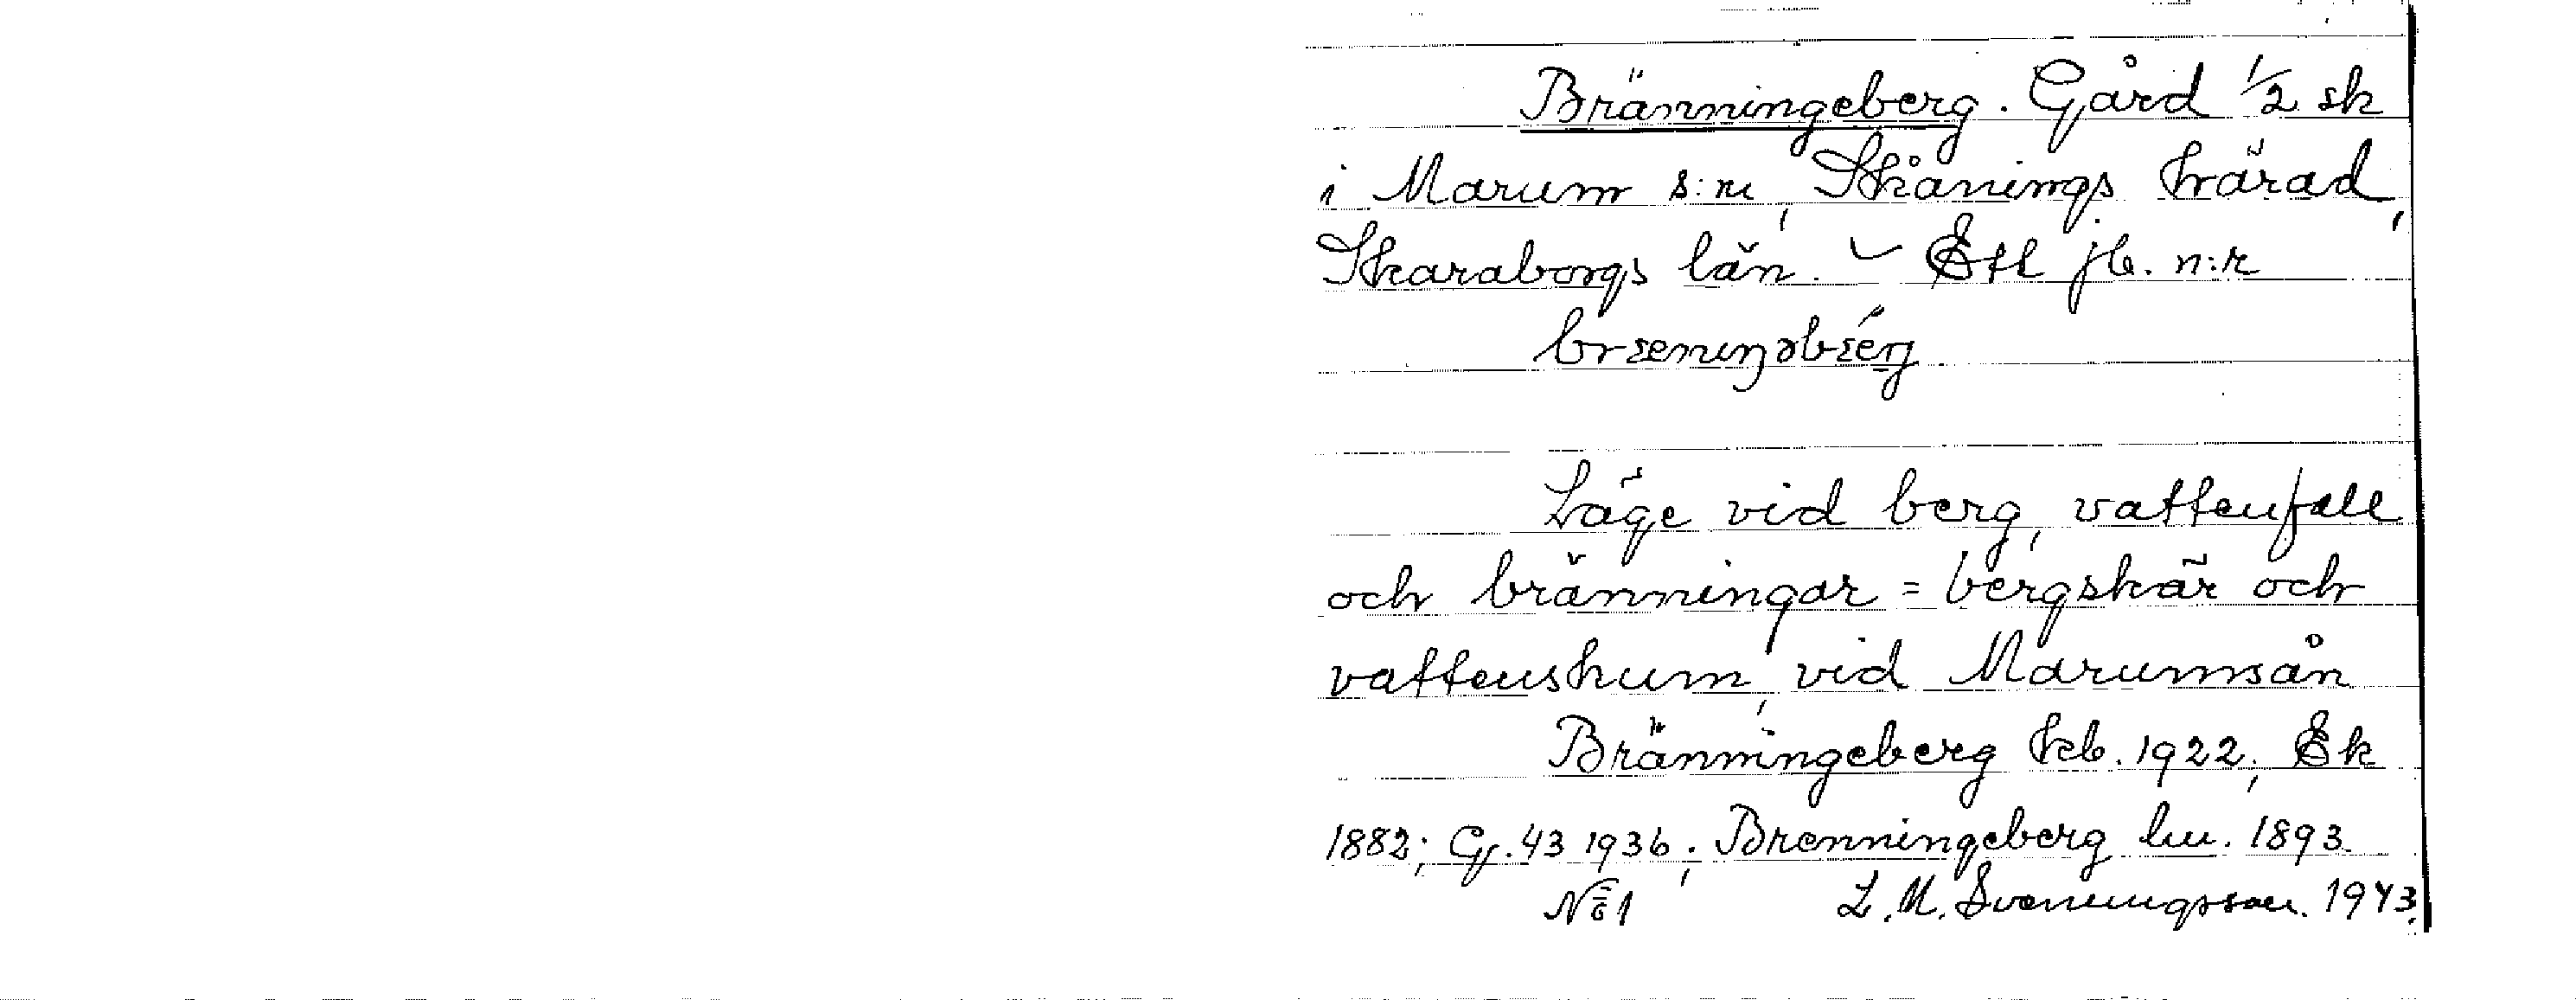 Bränningeberg. Gård 1/2 sk
i Marum s:n, Skånings härad,
Skaraborgs län. Ett jb. n:r
brænıŋəbǽrj
Läge vid berg, vattenfall
och bränningar = bergskär och
vattenskum, vid Marumsån
Bränningeberg kb. 1922; Ek
1882; Gr. 43 1936; Brenningeberg lm. 1893.
No 1 L. M. Svenungsson. 1943.